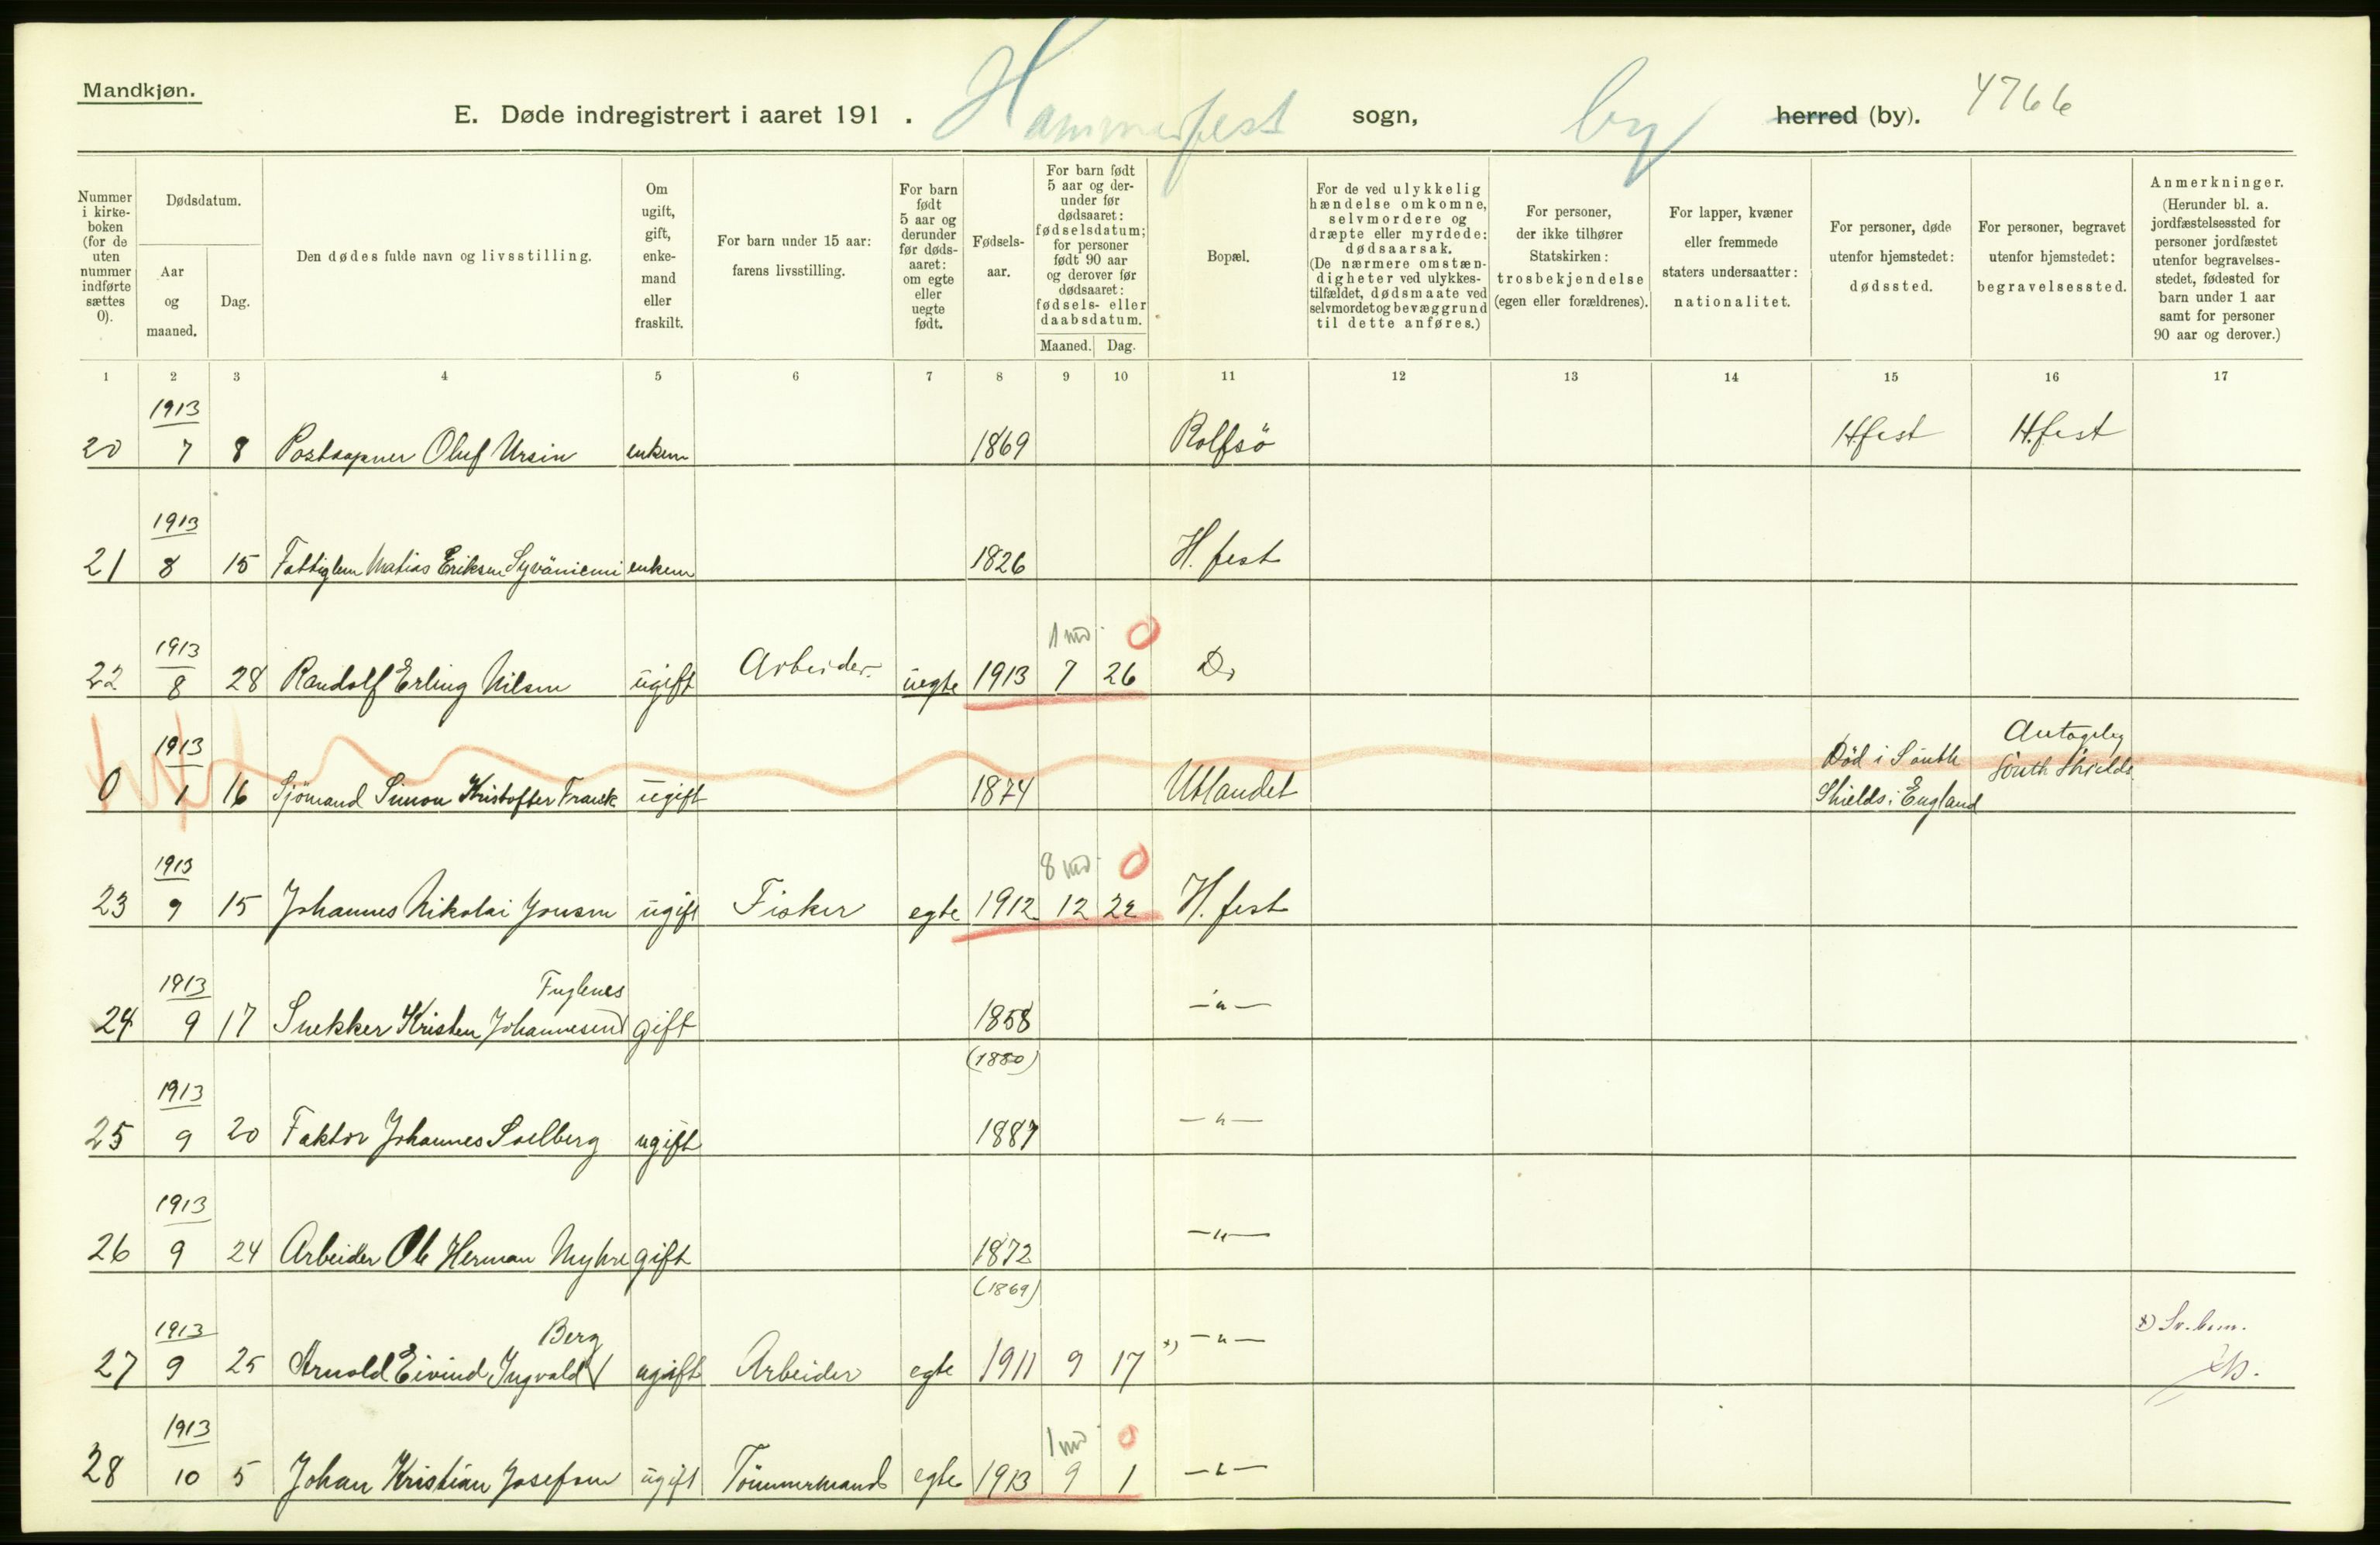 Mandkjøn.
E. Døde indregistrert i aaret 191 . Hammerfest sogn, by herred (by). 4766
Nummer i kirkeboken (for de uten nummer indførte sættes 0).
Dødsdatum.
Aar og maaned.
Dag.
Den dødes fulde navn og livsstilling.
Om ugift, gift, enkemand eller fraskilt.
For barn under 15 aar: farens livsstilling.
For barn født 5 aar og derunder før dødsaaret: om egte eller uegte født.
Fødselsaar.
For barn født 5 aar og derunder før dødsaaret: fødselsdatum; for personer født 90 aar og derover før dødsaaret: fødsels- eller daabsdatum.
Maaned. Dag.
Bopæl.
For de ved ulykkelig hændelse omkomne, selvmordere og dræpte eller myrdede: dødsaarsak. (De nærmere omstændigheter ved ulykkestilfældet, dødsmaate ved selvmordet og bevæggrund til dette anføres.)
For personer, der ikke tilhører Statskirken: trosbekjendelse (egen eller forældrenes).
For lapper, kvæner eller fremmede staters undersaatter: nationalitet.
For personer, døde utenfor hjemstedet: dødssted.
For personer, begravet utenfor hjemstedet: begravelsessted.
Anmerkninger. (Herunder bl. a. jordfæstelsessted for personer jordfæstet utenfor begravelsesstedet, fødested for barn under 1 aar samt for personer 90 aar og derover.)
1 2 3 4 5 6 7 8 9 10 11 12 13 14 15 16 17
1913
20 7 8 Postaapner Oluf Ursin enkem 1869 Rolfsö Hfest H.fest
1913
21 8 15 Fattiglem Matias Eriksen Syväniemi enkem 1826 H. fest
1913 1 md 0
22 8 28 Randolf Erling Nilsen ugift Arbeider uegte 1913 7 26 Do
1913
0 1 16 Sjömand Simon Kristoffer Franck ugift 1874 Utlandet Död i South Shields i England Antagelig South Shields
1913 8 md 0
23 9 15 Johannes Nikolai Jonsen ugift Fisker egte 1912 12 22 H. fest
1913 Fuglenes
24 9 17 Snekker Kristen Johannesen gift 1858 — " —
(1880)
1913
25 9 20 Faktor Johannes Solberg ugift 1887 — " —
1913
26 9 24 Arbeider Ole Herman Myhre gift 1872 — " —
(1869)
1913 Berg
27 9 25 Arnold Eivind Ingvald ugift Arbeider egte 1911 9 17 x) — " — x)
1913 1 md 0
28 10 5 Johan Kristian Josefsen ugift Tömmermand egte 1913 9 1 — " —